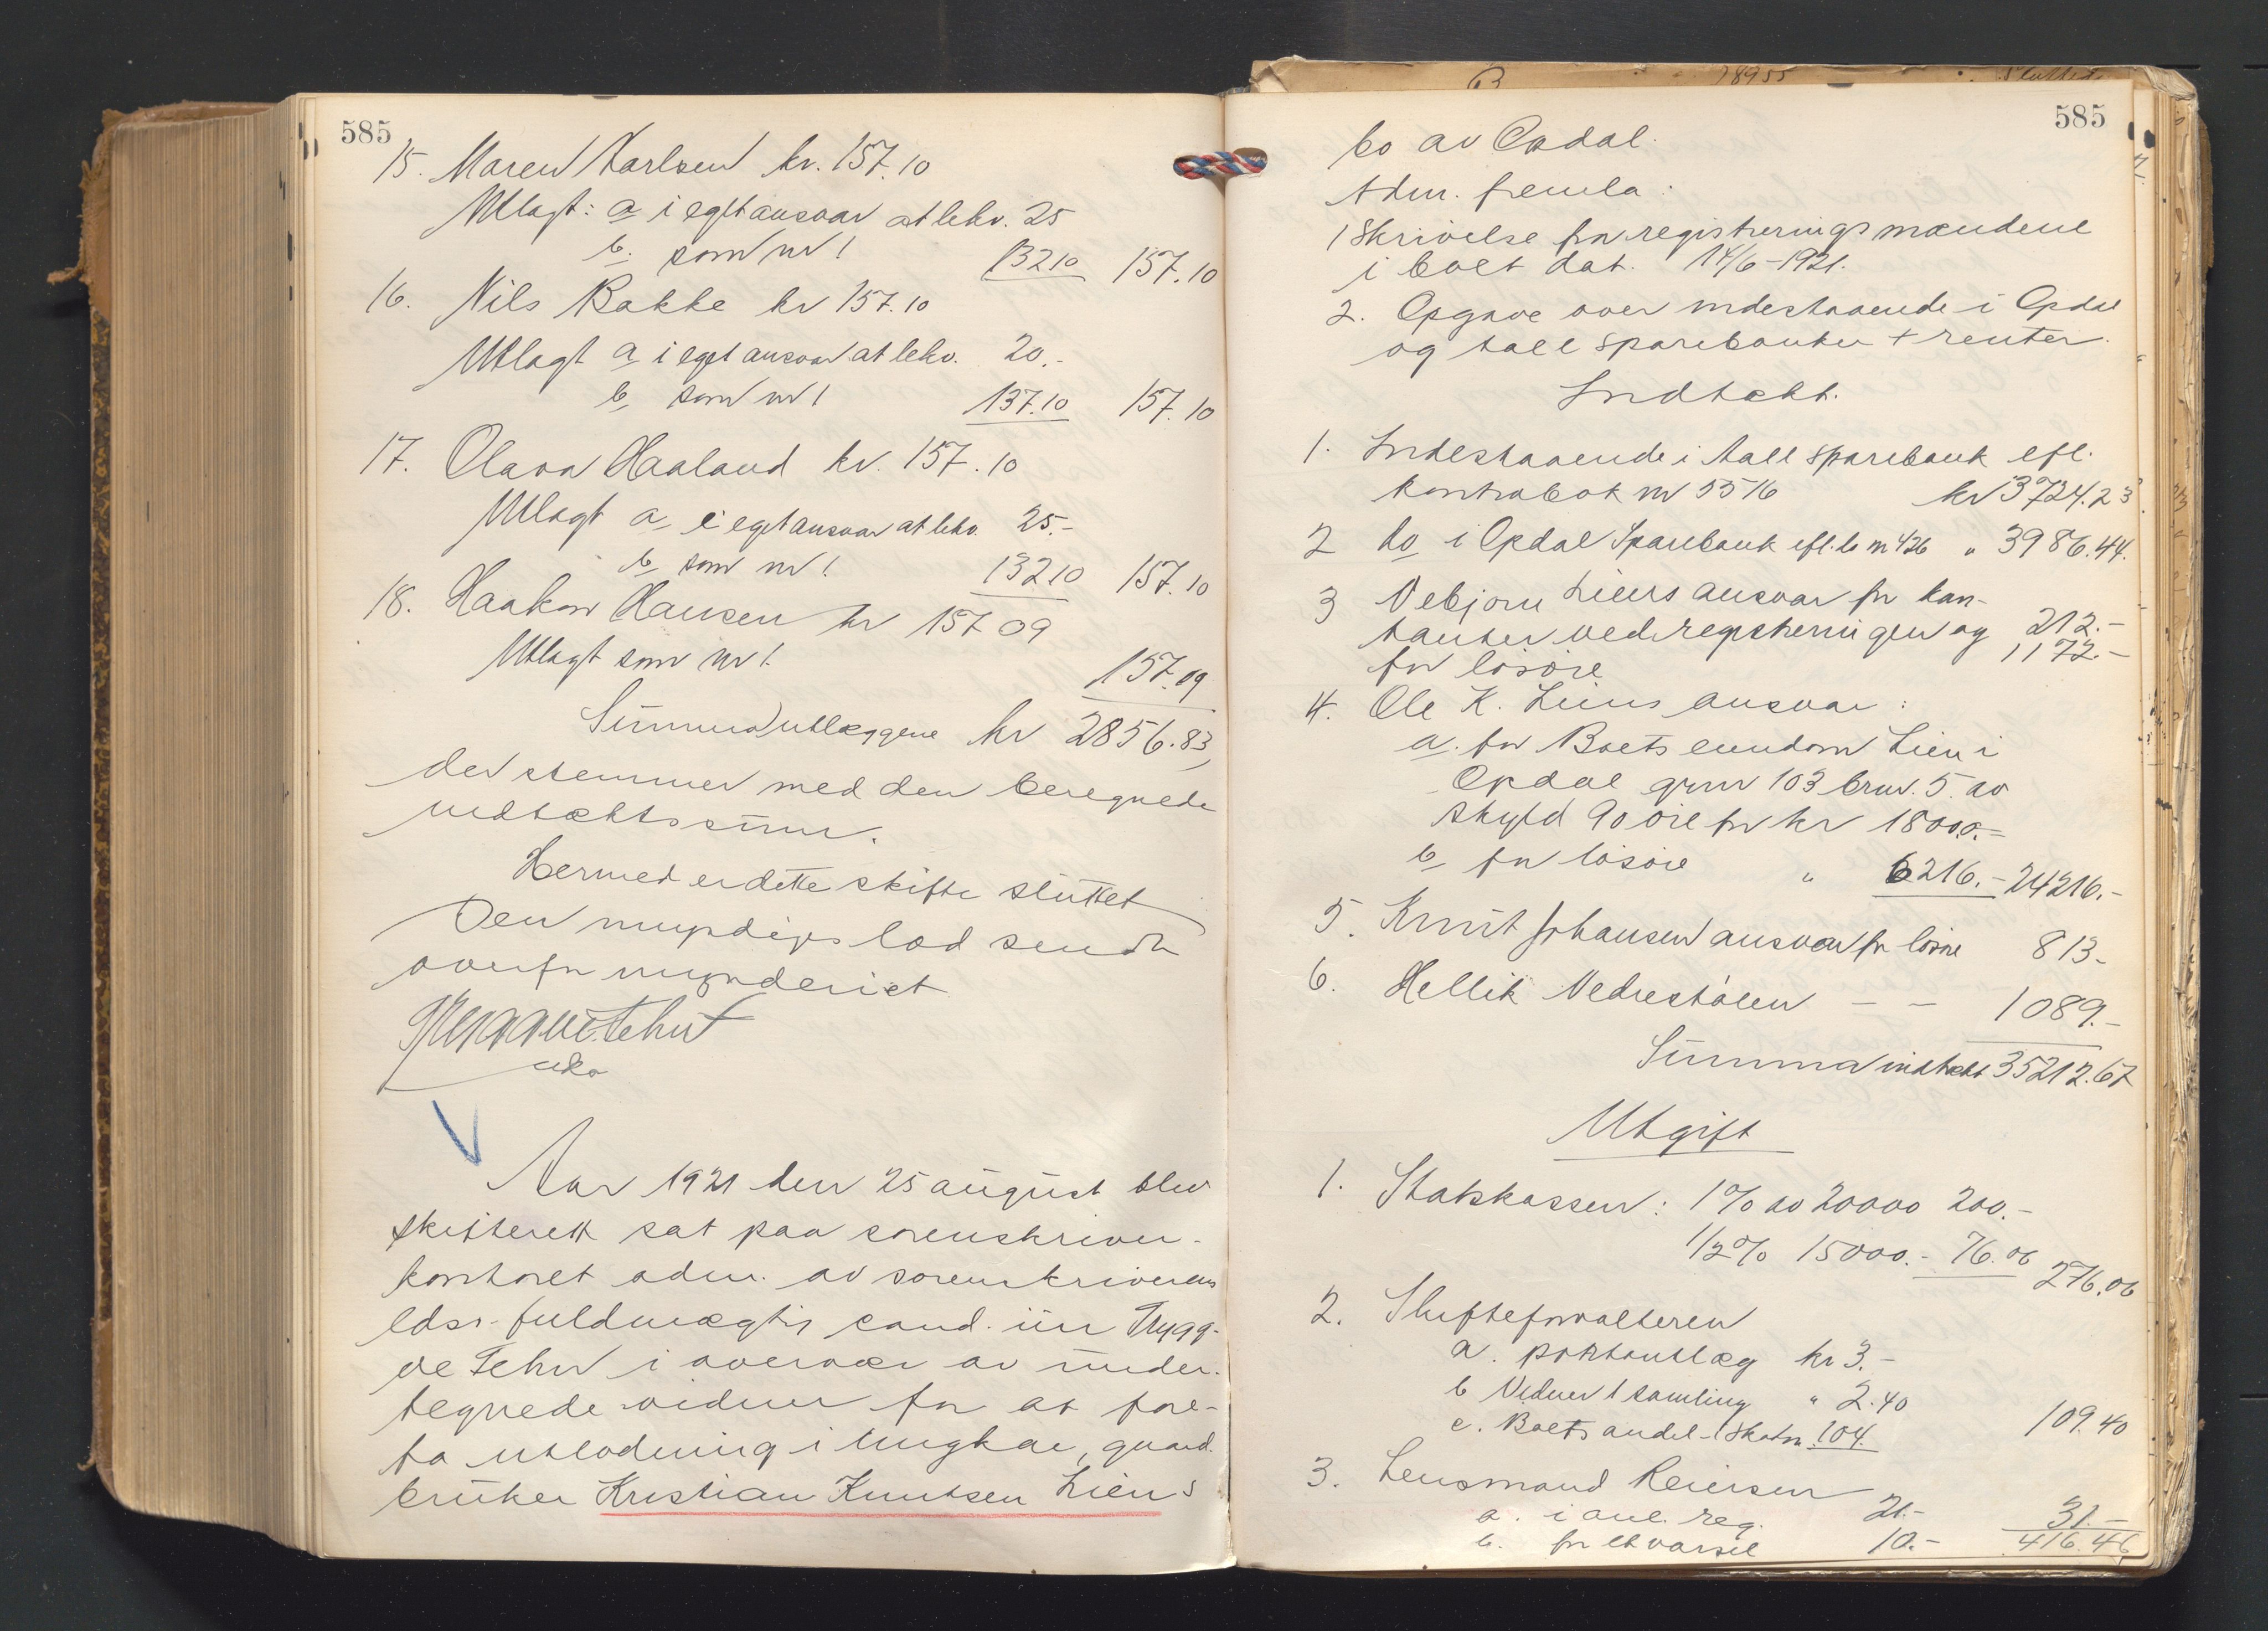 585
15. Maren Karlsen kr. 157.10
Utlagt: a i eget ansvar at lekv. 25
b. som nr 1 132 10 157.10
16. Nils Bakke kr 157.10
Utlagt a i eget ansvar at lekv. 20.-
b som nr 1 137.10 157.10
17. Olava Haaland kr. 157.10
Utlagt a i eget ansvar at lekv. 25.-
b som nr 1. 132 10 157.10
18. Haakon Hansen kr 157 09
Utlagt som nr 1. 157.09
Summa utlæggene kr 2856.83,
der stemmer med den beregnede
indtæktssum.
Hermed er dette skifte sluttet
Den myndiges lod sendt
overformynderiet
Trygve Tehn
cka
Aar 1921 den 25 august blev
skifterett sat paa sorenskriver-
kontoret adm. av sorenskriverens
edsv. fuldmægtig cand. jur Tryg-
ve Tehn i overvær av under-
tegnede vidner for at fore-
ta utlodning i ungkar, gaard-
bruker Kristian Knutsen Liens
585
bo av Opdal.
Adm. fremla:
1 Skrivelse fra registreringsmændene
i boet dat. 14/6-1921.
2. Opgave over indestaaende i Opdal
og Aall sparebanker + renter.
Indtækt.
1. Indestaaende i Aall sparebank efl.
kontrabok nr 5516 kr 3724.23
2 do i Opdal Sparebank efl. b nr 426 " 3986.44.
3 Nebjørn Liens ansvar for kon-
tanter ved registreringen og 212.-
for løsøre 1172.-
4. Ole K. Liens ansvar:
a. for Boets eiendom Lien i
Opdal grnr 103 brnr. 5. av
skyld 90 øre for kr 18000.-
b for løsøre " 6216.- 24216.-
5. Knut Johansen ansvar for løsøre 813-
6. Hellik Nedrestølen - - 1089.-
Summa indtækt 35212.67
Utgift
1. Statskassen: 1% av 20000 200.-
1/2% 15000.- 76.06 276,06
2. Skifteforvalteren
a. portoutlæg kr 3.-
b Vidner 1 samling " 2.40
c. Boets andel i skatn. 104. 109.40
3. Lensmand Reiersen
a. i anl. reg. 21.- 31.-
b. for et varsel 10.- 416.46